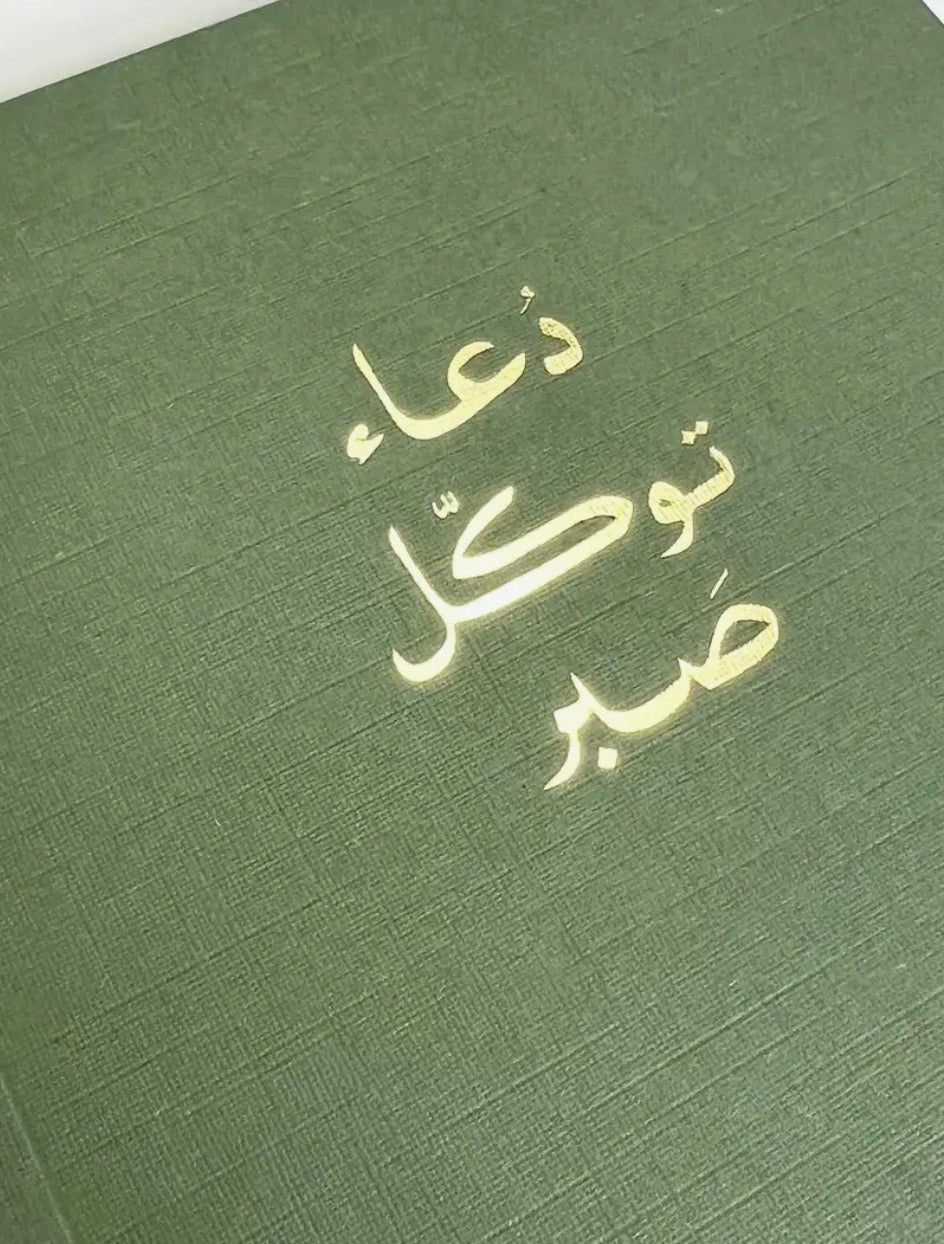 دُعاء
توكّل
صَبر